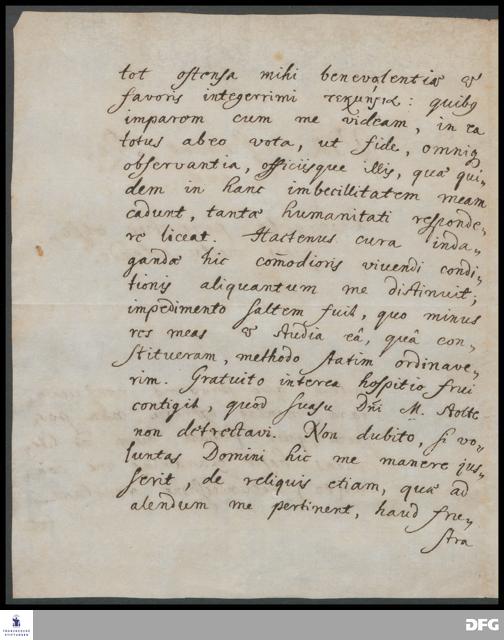 tot ostensa mihi benevolentiæ &
favoris integerrimi τεκμήρια: quibꝫ
imparem cum me videam, in ea
totus abeo vota, ut fide, omniqꝫ
observantia, officiisque illis, quæ qui-
dem in hanc imbecillitatem meam
cadunt, tantæ humanitati responde-
re liceat. Hactenus cura inda-
gandæ hic com̄odioris vivendi condi-
tionis aliquantum me distinuit;
impedimento saltem fuit, quo minus
res meas & studia eâ, quâ con-
stitueram, methodo statim ordinave-
rim. Gratuito interea hospitio frui
contigit, quod suasu Dn̄i M. Nolte
non detrectavi. Non dubito, si vo-
luntas Domini hic me manere jus-
serit, de reliquis etiam, quæ ad
alendum me pertinent, haud fru-
stra
FRANCKESCHE
STIFTUNGEN
DFG